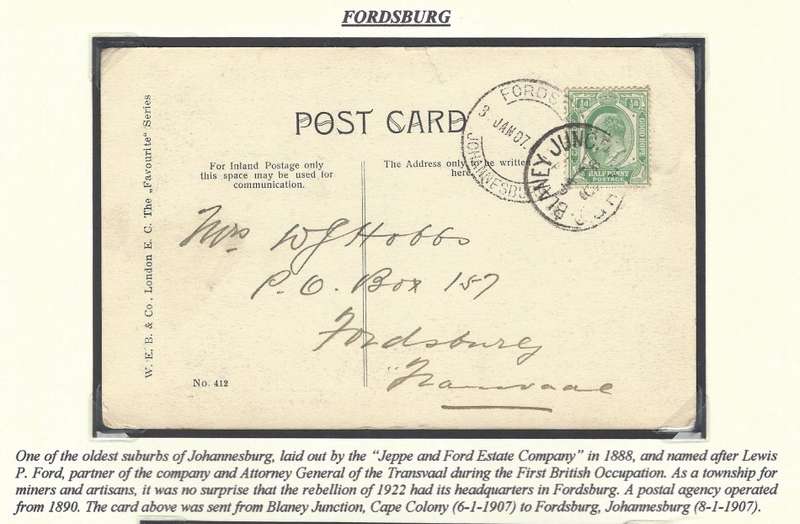 FORDSBURG
W. E. B. & Co., London E. C. The „Favourite“ Series
POST CARD
For Inland Postage only
this space may be used for
communication.
The Address only to be written
here.
FORDS
8 JAN 07.
JOHANNESBU
HALFPENNY
POSTAGE
BLANEY JUNC.
Mrs W J Hobbs
P. O. Box 157
Fordsburg
Transvaal
No. 412
One of the oldest suburbs of Johannesburg, laid out by the “Jeppe and Ford Estate Company” in 1888, and named after Lewis
P. Ford, partner of the company and Attorney General of the Transvaal during the First British Occupation. As a township for
miners and artisans, it was no surprise that the rebellion of 1922 had its headquarters in Fordsburg. A postal agency operated
from 1890. The card above was sent from Blaney Junction, Cape Colony (6-1-1907) to Fordsburg, Johannesburg (8-1-1907).